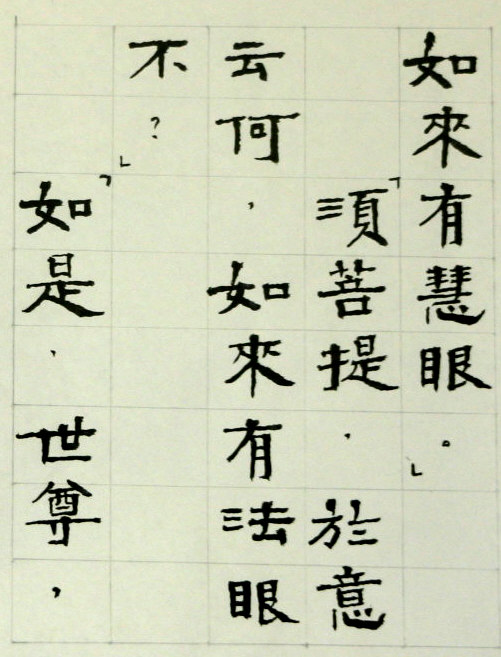 如來有慧眼。」
「須菩提．於意
云何，如來有法眼
不？」
「如是．世尊，